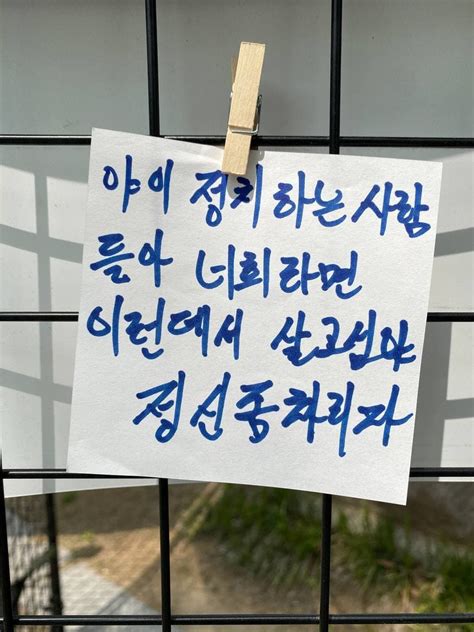 야이 정치하는 사람
들아 너희라면
이런데서 살고십냐
정신좀차리자